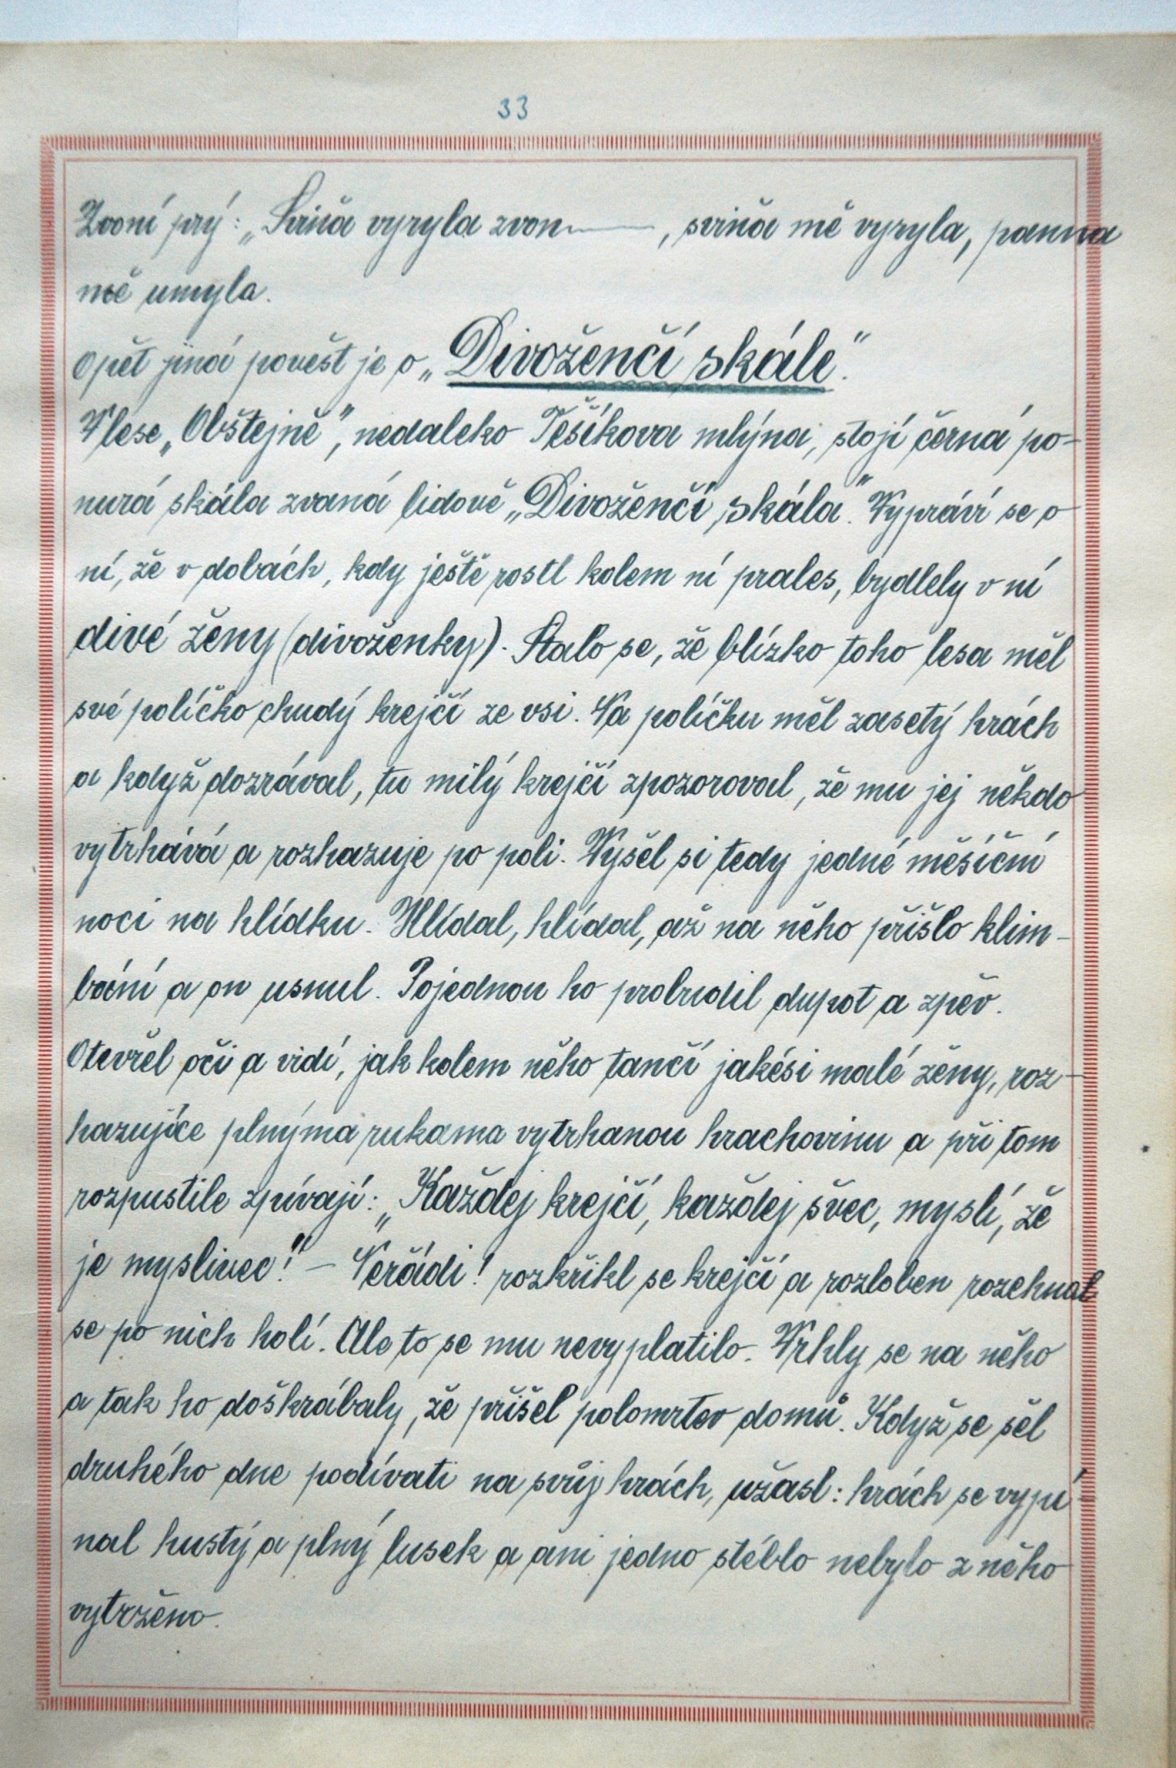 33
Zvoní prý: „Sviňa vyryla zvon——, sviňa mě vyryla, panna
mě umyla.
Opět jiná pověst je o „Divoženčí skále".
V lese „Obštejně", nedaleko Těšíkova mlýna, stojí černá po-
nurá skála zvaná lidově „Divoženčí skála". Vypráví se o
ní, že v dobách, kdy ještě rostl kolem ní prales, bydlely v ní
divé ženy (divoženky). Stalo se, že blízko toho lesa měl
své políčko chudý krejčí ze vsi. Na políčku měl zasetý hrách
a když dozrával, tu milý krejčí zpozoroval, že mu jej někdo
vytrhává a rozhazuje po poli. Vyšel si tedy jedné měsíční
noci na hlídku. Hlídal, hlídal, až na něho přišlo klim-
bání a on usnul. Pojednou ho probudil dupot a zpěv.
Otevřel oči a vidí, jak kolem něho tančí jakési malé ženy, roz-
hazujíce plnýma rukama vytrhanou hrachovinu a při tom
rozpustile zpívají: „Každej krejčí, každej švec, myslí, že
je myslivec!" – Neřádi! rozkřikl se krejčí a rozloben rozehnal
se po nich holí. Ale to se mu nevyplatilo. Vrhly se na něho
a tak ho doškrábaly, že přišel polomrtev domů. Když se šel
druhého dne podívati na svůj hrách, užasl: hrách se vypí-
nal hustý a plný lusek a ani jedno stéblo nebylo z něho
vytrženo.